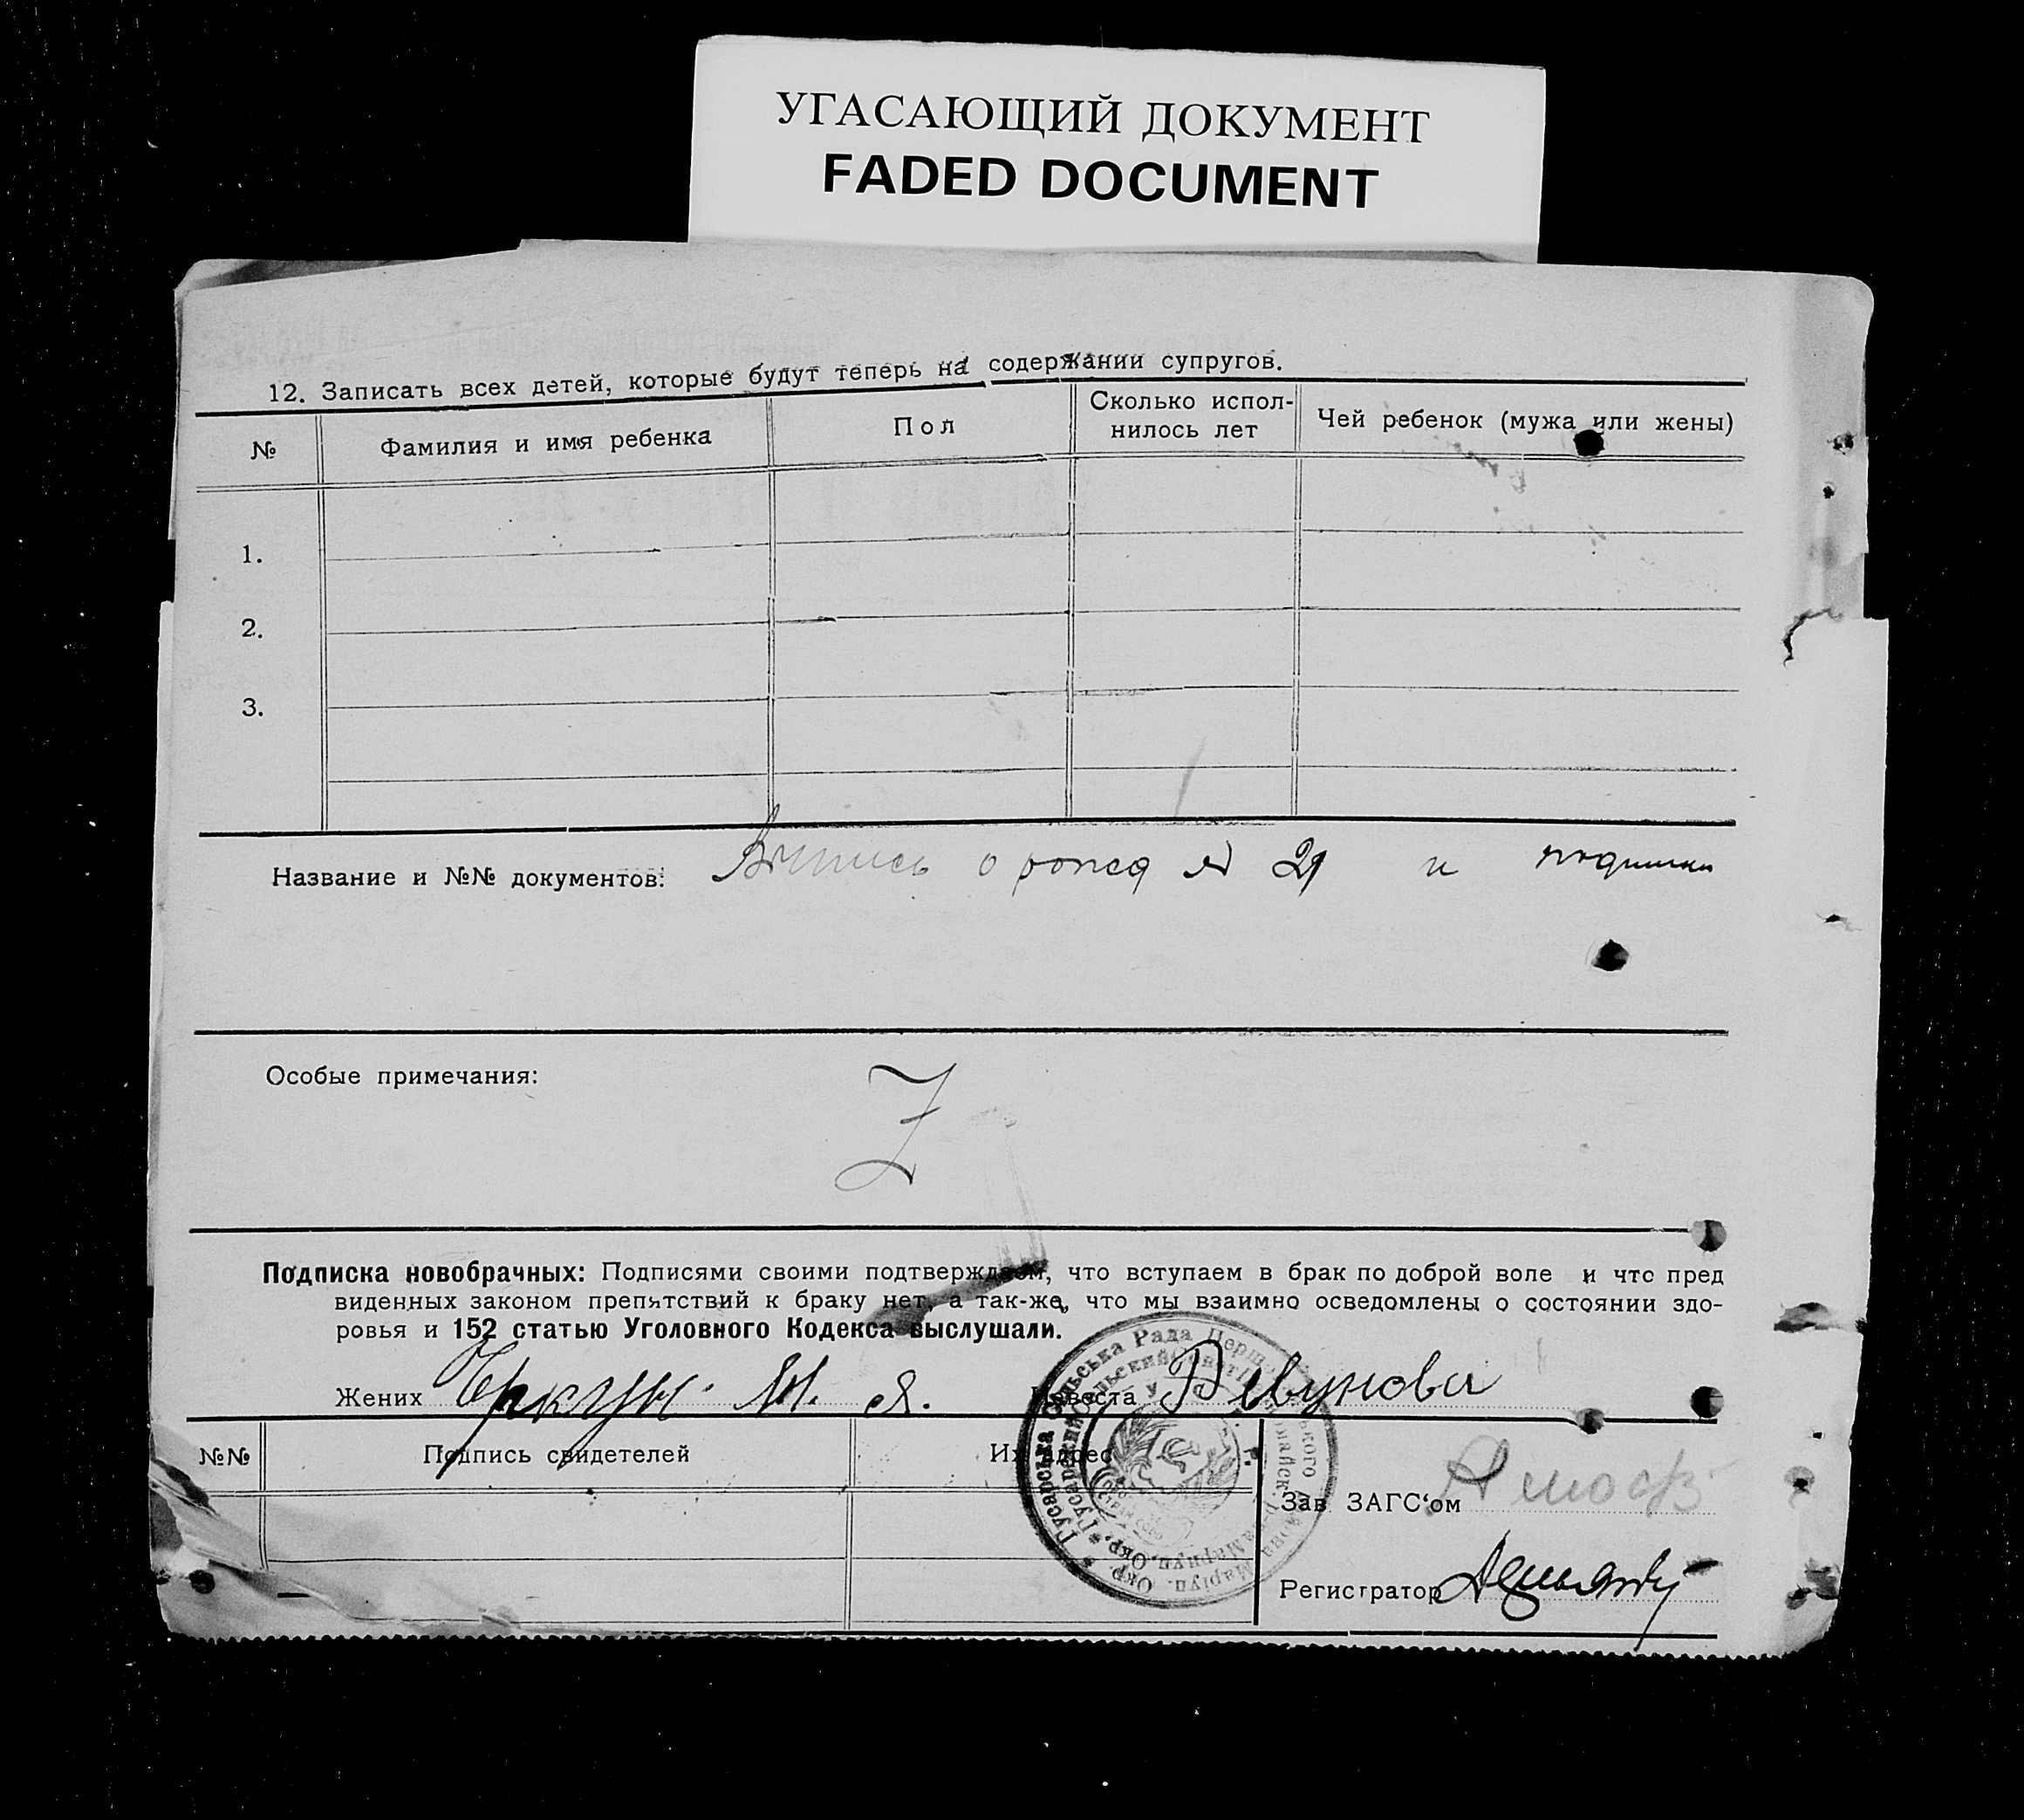 УГАСАЮЩИЙ ДОКУМЕНТ
FADED DOCUMENT
12. Записать всех детей, которые будут теперь на содержании супругов.
№ Фамилия и имя ребенка Пол Сколько испол-нилось лет Чей ребенок (мужа или жены)
1.
2.
3.
Название и №№ документов: Выпись о рожд № 21 и
Особые примечания: Z
Подписка новобрачных: Подписями своими подтверждаем, что вступаем в брак по доброй воле и что пред
виденных законом препятствий к браку нет, а так-же, что мы взаимно осведомлены о состоянии здо-
ровья и 152 статью Уголовного Кодекса выслушали.
Жених Невеста Ревунова
№№ Подпись свидетелей Их адрес
Зав. ЗАГС‘ом
Регистратор
Гусарська Сільська Рада Перш. Окр.
Гусарский Сельский Мариуп. Окр.